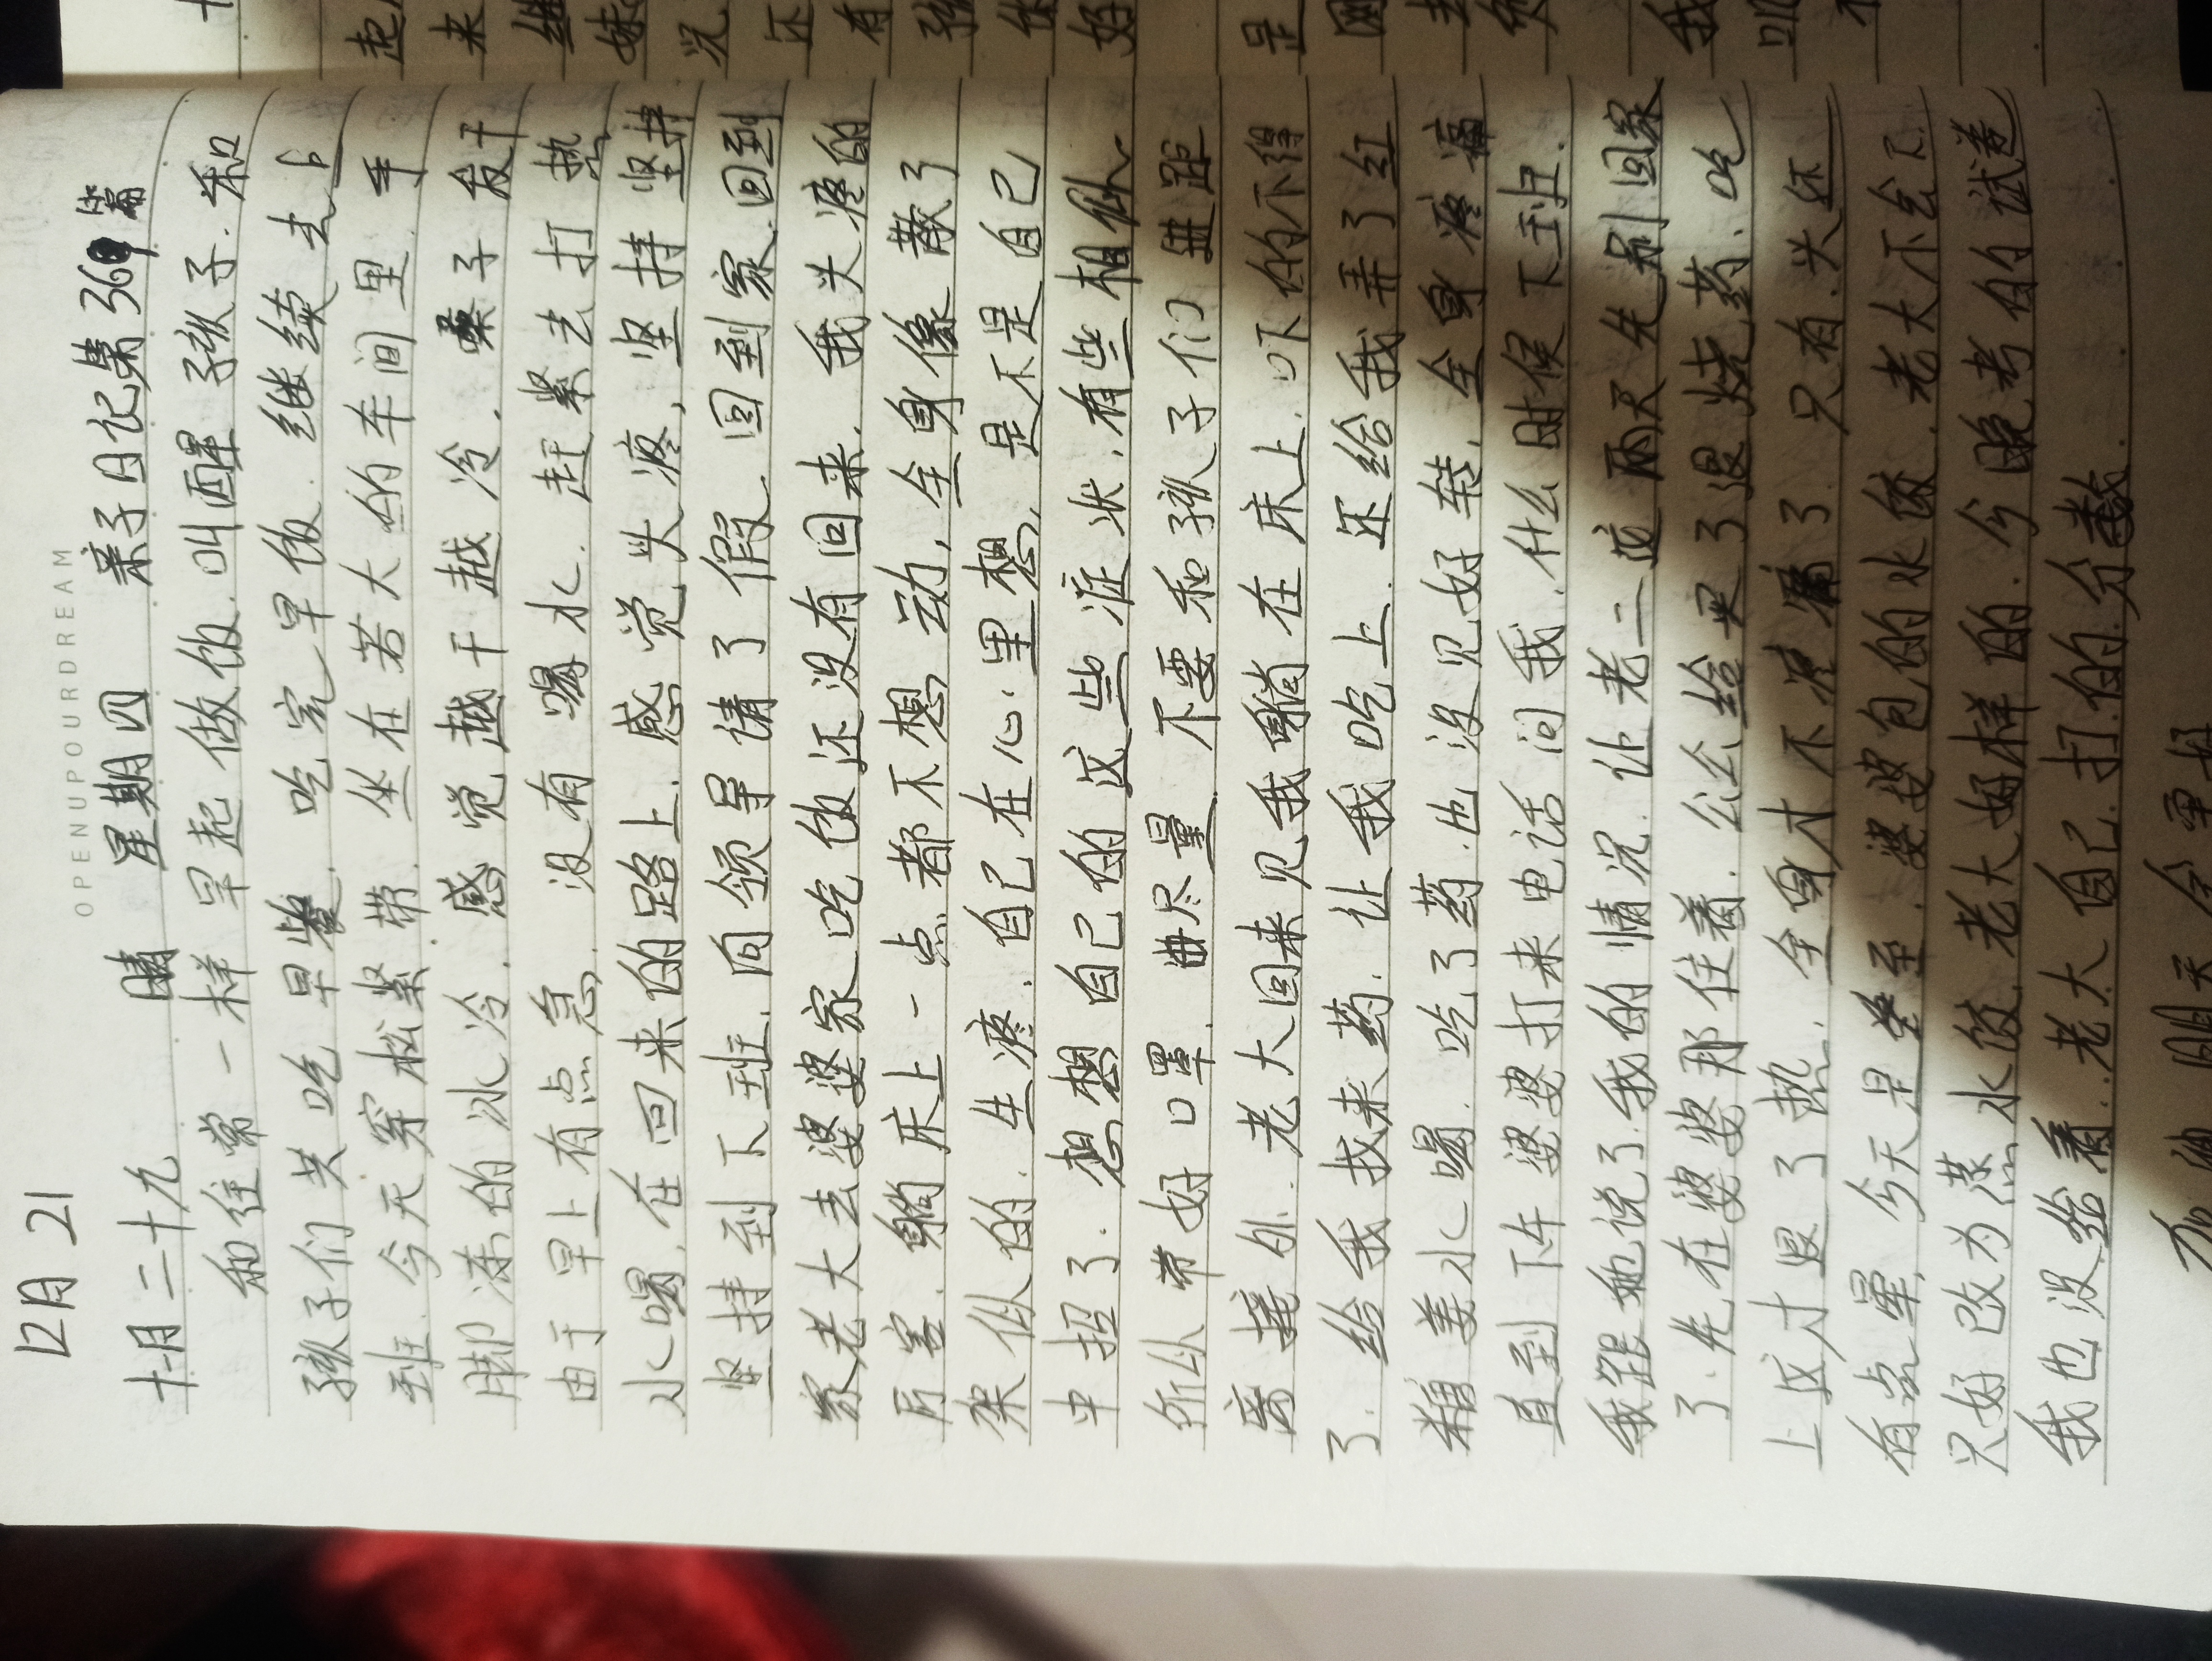 OPENUPOURDREAM
12月21
十月二十九 晴 星期四 亲子日记第369篇
和往常一样早起做饭.叫醒孩子.和
孩子们共吃早餐.吃完早饭.继续去上
班.今天穿松紧带.坐在若大的车间里.手
脚冻的冰冷.感觉越干越冷.嗓子发干
由于早上有点急.没有喝水.赶紧去打热
水喝.在回来的路上.感觉头疼,坚持坚持
坚持到下班.向领导请了假.回到家.回到
家老大去婆婆家吃饭还没有回来.我头疼的
厉害.躺床上一点都不想动,全身像散了
架似的.生疼.自己在心里想,是不是自己
中招了.想想自己的这些症状,有些相似
所以带好口罩.尽量不要和孩子们进距
离接外.老大回来见我躺在床上.吓的不得
了.给我找来药.让我吃上.还给我弄了红
糖姜水喝.吃了药.也没见好转.全身疼痛
直到下午婆婆打来电话问我.什么时候下班.
我跟她说了我的情况.让老二这两天先别回家
了.先在婆婆那住着.公公给买了退烧药.吃
上这才退了热.全身才不疼了.只有头还
有点晕.今天是冬至.婆婆包的水饺.老大不会下
只好改为蒸水饺.老大好样的.今晚考的试卷
我也没给看.老大自己打的分数.
明天会更好
起
来
继
妹
况
还
有
孩
你
好
是
去
我